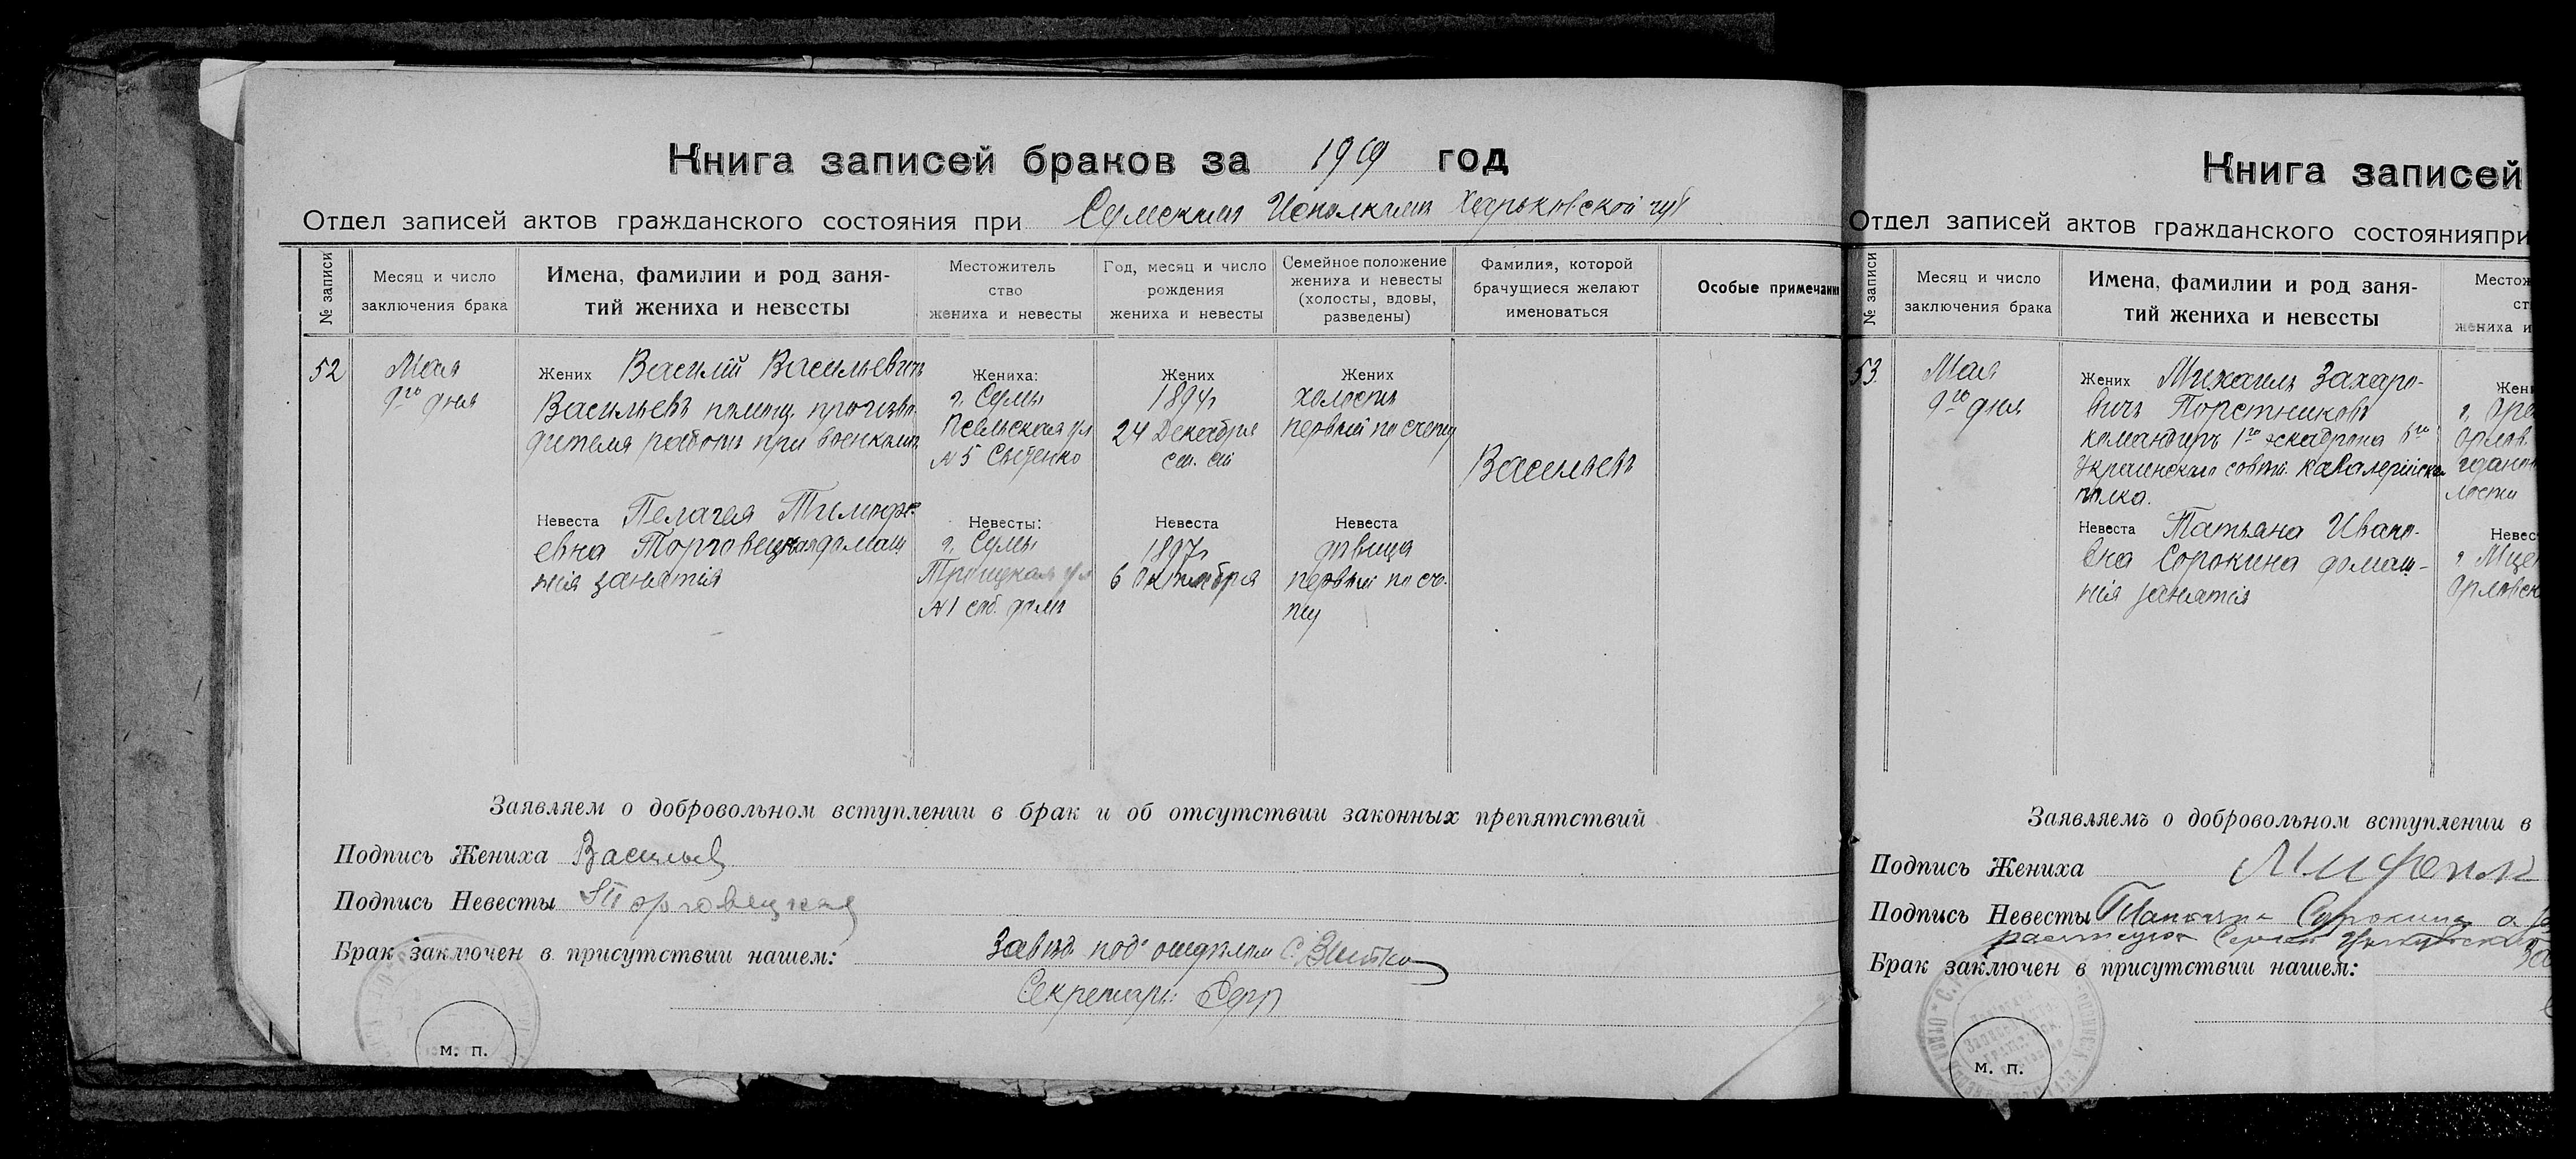 Книга записей браков за 1919 год
Отдел записей актов гражданского состояния при Сумском Исполкоме Харьковской губ
№ записи
Месяц и число
заключения брака
Имена, фамилии и род заня-
тий жениха и невесты
Местожитель
ство
жениха и невесты
Год, месяц и число
рождения
жениха и невесты
Семейное положение
жениха и невесты
(холосты, вдовы,
разведены)
Фамилия, которой
брачущиеся желают
именоваться
Особые примечани
52
Мая
9го дня
Жених Василий Васильевичъ
Васильевъ помощ. произво-
дителя работъ при военкомат
Невеста Пелагея Тимофе-
евна Торговецкая домаш
нія занятія
Жениха:
г. Сумы
Псельская ул
№ 5
Невесты:
г. Сумы
Троицкая ул
№ 1 соб. домъ
Жених
1894г
24 Декабря
Невеста
1897г
6 Октября
Жених
холостъ
первый по счету
Невеста
дѣвица
первый по сче-
ту
Васильевъ
Заявляем о добровольном вступлении в брак и об отсутствии законных препятствий
Подпись Жениха Васильев
Подпись Невесты Торговецкая
Брак заключен в присутствии нашем: Завѣд. под отдѣлом
Секретарь
м. п.
Книга записей
Отдел записей актов гражданского состоянияпри
№ записи
Месяц и число
заключения брака
Имена, фамилии и род заня-
тий жениха и невесты
Местож
ст
жениха и
53
Мая
9го дня
Жених Михаилъ Захаро-
вичъ Порстниковъ
командиръ 1го эскадрона 6го
Украинскаго совѣт. кавалерійска
полка.
Невеста Татьяна Ивано-
вна Сорокина домаш-
нія занятія
Жени
г. Оре
Орлов.
лости
Невес
г. Мцен
Орловск
Заявляемъ о добровольном вступлении в
Подпись Жениха
Подпись Невесты Татьяна Сорокина а за
Брак заключен в присутствии нашем:
м. п.